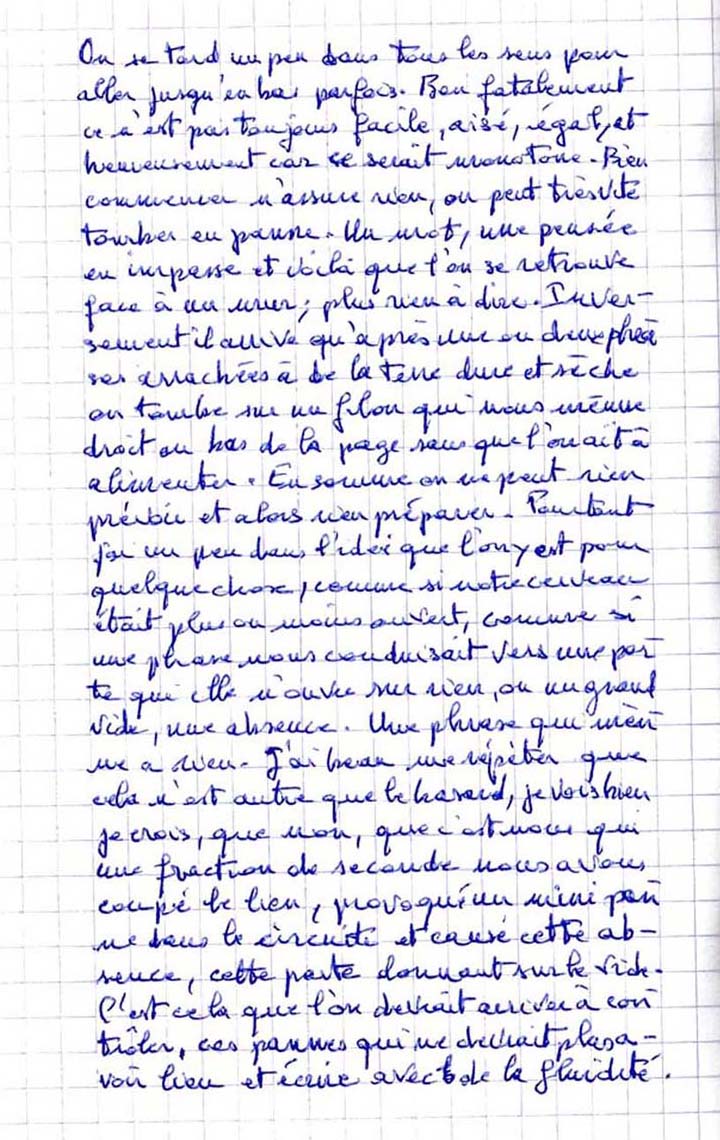 On se tord un peu dans tous les sens pour
aller jusqu'en bas parfois. Bon fatalement
ce n'est pas toujours facile, aisé, égal, et
heureusement car ce serait monotone. Bien
commencer n'assure rien, on peut très vite
tomber en panne. Un mot, une pensée
en impasse et voilà que l'on se retrouve
face à un mur, plus rien à dire. Inver-
sement il arrive qu'après une ou deux phra
ses arrachées à de la terre dure et sèche
on tombe sur un filon qui nous mène
droit au bas de la page sans que l'on ait à
alimenter. En somme on ne peut rien
prévoir et alors rien préparer. Pourtant
j'ai un peu dans l'idée que l'on y est pour
quelque chose, comme si notre cerveau
était plus ou moins ouvert, comme si
une phrase nous conduisait vers une por
te qui elle n'ouvre sur rien, ou un grand
vide, une absence. Une phrase qui mèn
ne a rien. J'ai beau me répéter que
cela n'est autre que le hasard, je vois bien
je crois, que non, que c'est nous qui
une fraction de seconde nous avons
coupé le lien, provoqué un mini pan
ne dans le circuit et causé cette ab-
sence, cette porte donnant sur le vide.
C'est cela que l'on devrait arriver à con
trôler, ces pannes qui ne devrait plus a-
voir lieu et écrire avec de la fluidité.